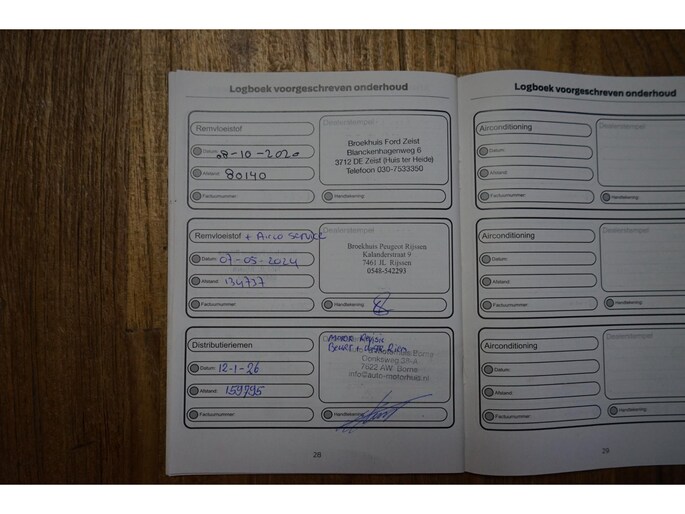 Logboek voorgeschreven onderhoud
Remvloeistof
Datum: 08-10-2020
Afstand: 80140
Factuurnummer:
Dealerstempel
Broekhuis Ford Zeist
Blanckenhagenweg 6
3712 DE Zeist (Huis ter Heide)
Telefoon 030-7533350
Handtekening:
Remvloeistof + Airco service
Datum: 07-05-2024
Afstand: 134737
Factuurnummer:
Broekhuis Peugeot Rijssen
Kalanderstraat 9
7461 JL Rijssen
0548-542293
Handtekening:
Distributieriemen
Datum: 12-1-26
Afstand: 159795
Factuurnummer:
Motor
Beurt +
Borne
Donksweg
7622 AW Borne
info@auto-motorhuid.nl
Handtekening:
28
Logboek voorgeschreven onderhoud
Airconditioning
Datum:
Afstand:
Factuurnummer:
Dealerstempel
Handtekening:
Airconditioning
Datum:
Afstand:
Factuurnummer:
Dealerstempel
Handtekening:
Airconditioning
Datum:
Afstand:
Factuurnummer:
Dealerstempel
Handtekening:
29